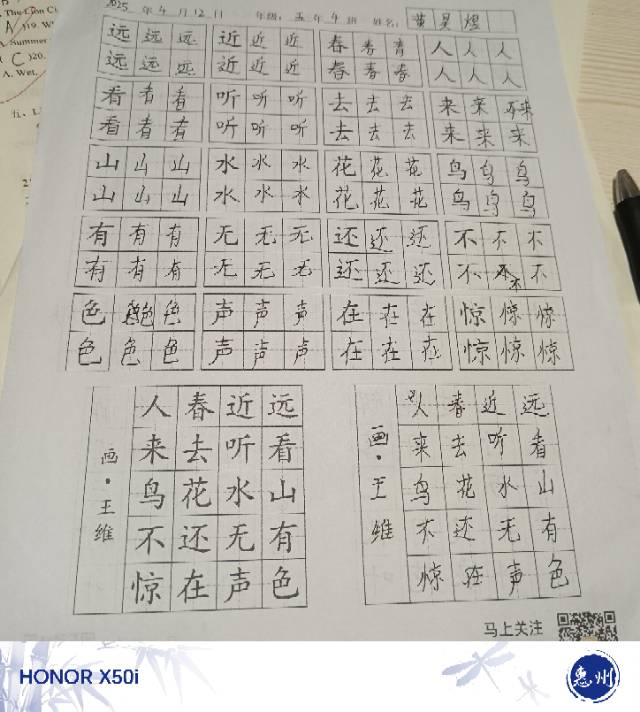 The Gon Ci
A )19. W
Summer
C )20.
A. Wet.
五、L
2025 年 4 月 12 日 年级：五 年 4 班 姓名：黄昊煜
远 远 远 近 近 近 春 春 春 人 人 人
远 远 远 近 近 近 春 春 春 人 人 人
看 看 看 听 听 听 去 去 去 来 来 来
看 看 看 听 听 听 去 去 去 来 来 来
山 山 山 水 水 水 花 花 花 鸟 鸟 鸟
山 山 山 水 水 水 花 花 花 鸟 鸟 鸟
有 有 有 无 无 无 还 还 还 不 不 不
有 有 有 无 无 无 还 还 还 不 不 不
色 色 色 声 声 声 在 在 在 惊 惊 惊
色 色 色 声 声 声 在 在 在 惊 惊 惊
远看山有色
近听水无声
春去花还在
人来鸟不惊
画·王维
远看山有色
近听水无声
春去花还在
人来鸟不惊
画·王维
马上关注
HONOR X50i
惠州